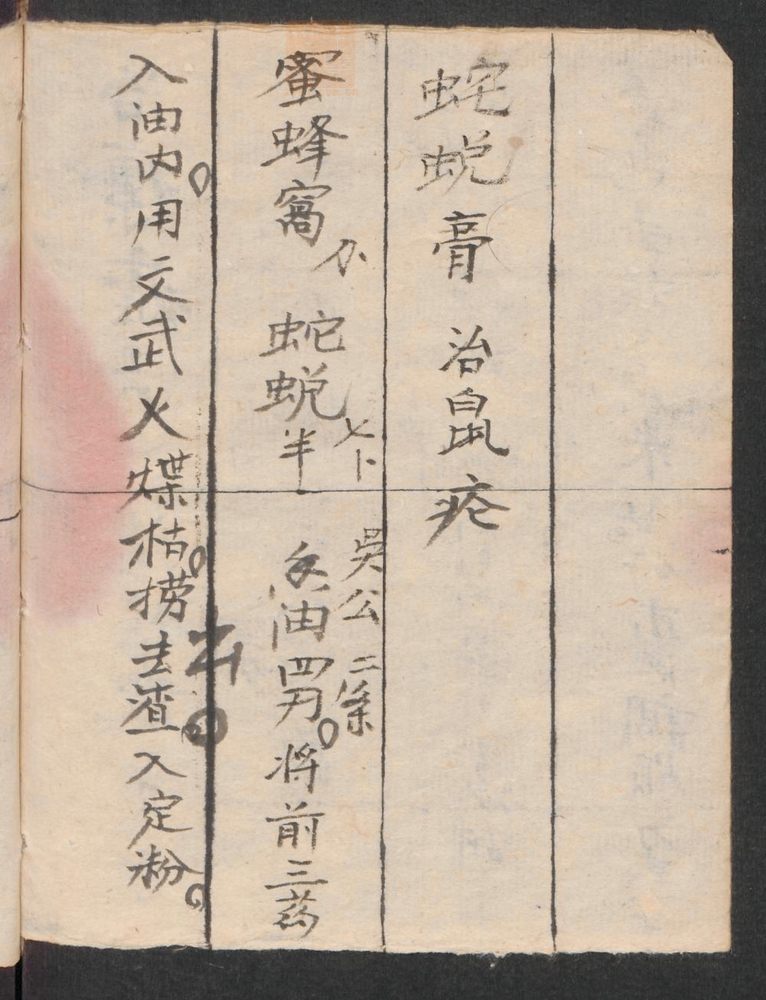 蛇蜕膏 治鼠疮
蜜蜂窩 蛇蜕半 吳公二条 香油四 。將前三葯
入油内。用文武火煠枯。捞去渣。入定粉。